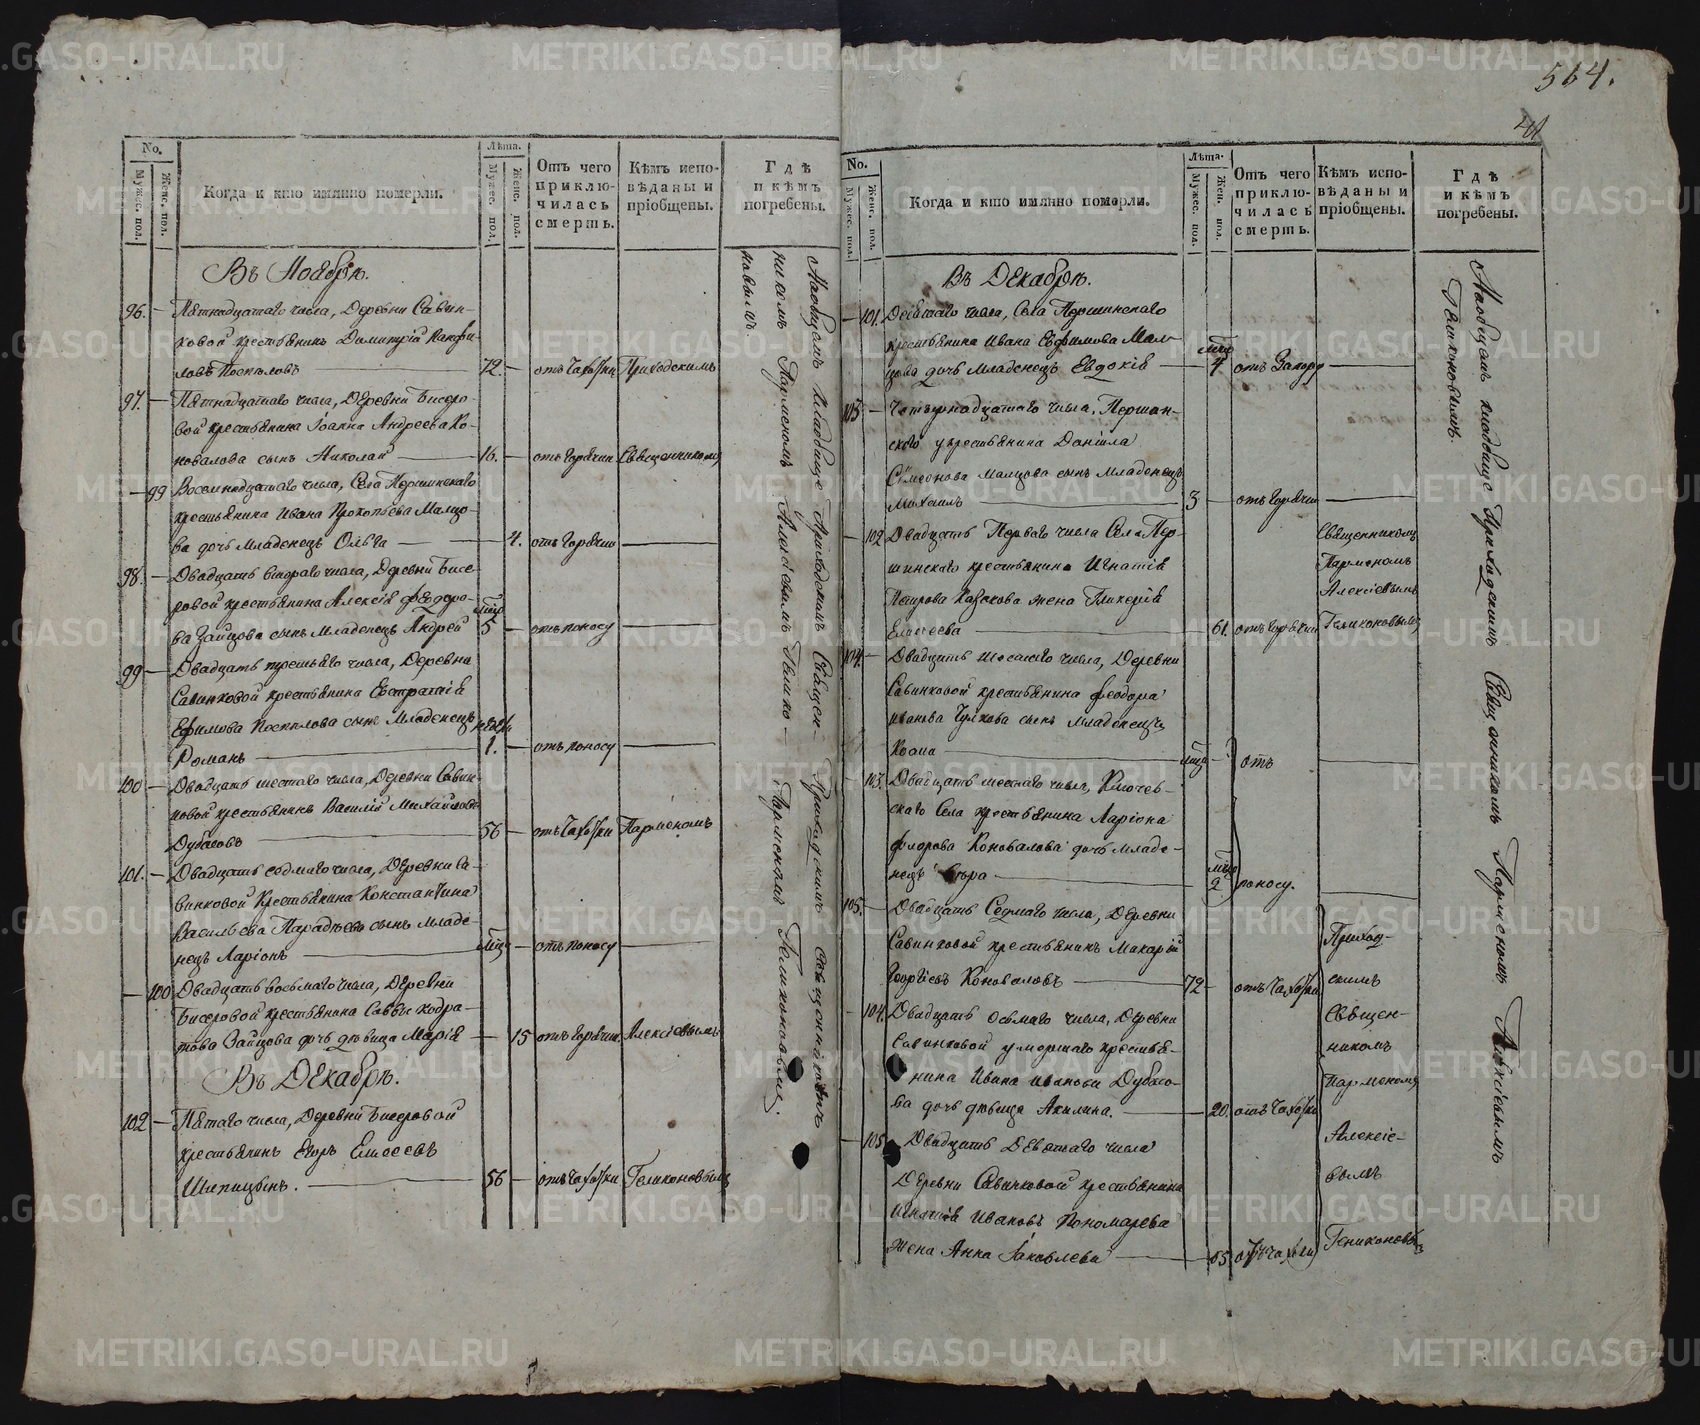 564.
No.
Мужес. пол.
Женс. пол.
Когда и кто имянно померли.
Лѣта.
Мужес. пол.
Женс. пол.
Отъ чего
приклю-
чилась
смерть.
Кѣмъ испо-
вѣданы и
пріобщены.
Гдѣ
и кѣмъ
погребены.
Въ Ноябрѣ.
96. Пятнадцатаго числа, Деревни Савин-
ковой крестьянинъ Димитрій Панфи-
ловъ Поспѣловъ 72 отъ Чахотки Приходскимъ
97. Пятнадцатаго числа, Деревни Бисеро-
вой крестьянина Іоанна Андреева Ко-
новалова сынъ Николай 16. отъ Горячки Священникомъ
99 Восемнадцатаго числа, Села Першинскаго
крестьянина Ивана Прокопьева Мальцо-
ва дочь младенецъ Ольга 4. отъ Горячки
98. Двадцать втораго числа, Деревни Бисе-
ровой крестьянина Алексія Федоро-
ва Зайцова сынъ младенецъ Андрей 5 отъ поносу
99 Двадцать третьяго числа, Деревни
Савинковой крестьянина Евстратія
Ефимова Поспѣлова сынъ Младенецъ
Романъ 1. отъ поносу
100 Двадцать шестаго числа, Деревни Савин-
ковой крестьянинъ Василій Михайловъ
Дубасовъ 56 отъ Чахотки Парменомъ
101. Двадцать седмаго числа, Деревни Са-
винковой Крестьянина Константина
Васильева сынъ младе-
нецъ Ларіонъ отъ поносу
100 Двадцать восьмаго числа, Деревни
Бисеровой крестьянина Саввы Кодра-
това Зайцова дочь дѣвица Марія 15 отъ Горячки Алексіевымъ
Въ Декабрѣ.
102 Пятаго числа, Деревни Бисеровой
крестьянинъ Егоръ Елисеевъ
Шипицынъ. 56 отъ Чахотки Геликоновымъ
На общемъ кладбище Приходскимъ Священ-
никомъ Парменомъ Алексіевымъ Гелико-
новымъ
No.
Мужес. пол.
Женс. пол.
Когда и кто имянно померли.
Лѣта.
Мужес. пол.
Женс. пол.
Отъ чего
приклю-
чилась
смерть.
Кѣмъ испо-
вѣданы и
пріобщены.
Гдѣ
и кѣмъ
погребены.
Въ Декабрѣ.
101. Десятаго числа, Села Першинскаго
крестьянина Ивана Ефимова Маль-
цова дочь младенецъ Евдокія 4 отъ
103 Четырнадцатаго числа, Першин-
скаго крестьянина Даніила
Симеонова Мальцова сынъ младенецъ
Михаилъ 3 отъ Горячки
102 Двадцать Перваго числа Села Пер-
шинскаго крестьянина Игнатія
Петрова жена Гликерія
Елисеева 61. отъ Горячки
Священникомъ
Парменомъ
Алексіевымъ
Геликоновымъ
104. Двадцать шестаго числа, Деревни
Савинковой крестьянина Феодора
Иванова Чулкова сынъ младенецъ
Козма отъ
103. Двадцать шестаго числа, Ключев-
скаго Села крестьянина Ларіона
Федорова Коновалова дочь младе-
нецъ 2 поносу.
105. Двадцать Седмаго числа, Деревни
Савинковой крестьянинъ Макарій
Георгіевъ Коноваловъ 72 отъ Чахотки
104. Двадцать осьмаго числа, Деревни
Савинковой умершаго крестья-
нина Ивана Иванова Дубасо-
ва дочь дѣвица Акилина. 20. отъ Чахотки
105 Двадцать Девятаго числа
Деревни Савинковой крестьянина
Игнатія Иванова Пономарева
жена Анна Іаковлева 65 отъ Чахотки
Приход-
скимъ
Священ-
никомъ
Парменомъ
Алексіе-
вымъ
Геликоновымъ
На общемъ кладбище Приходскимъ Священникомъ Парменомъ Алексіевымъ
Геликоновымъ.
METRIKI.GASO-URAL.RU